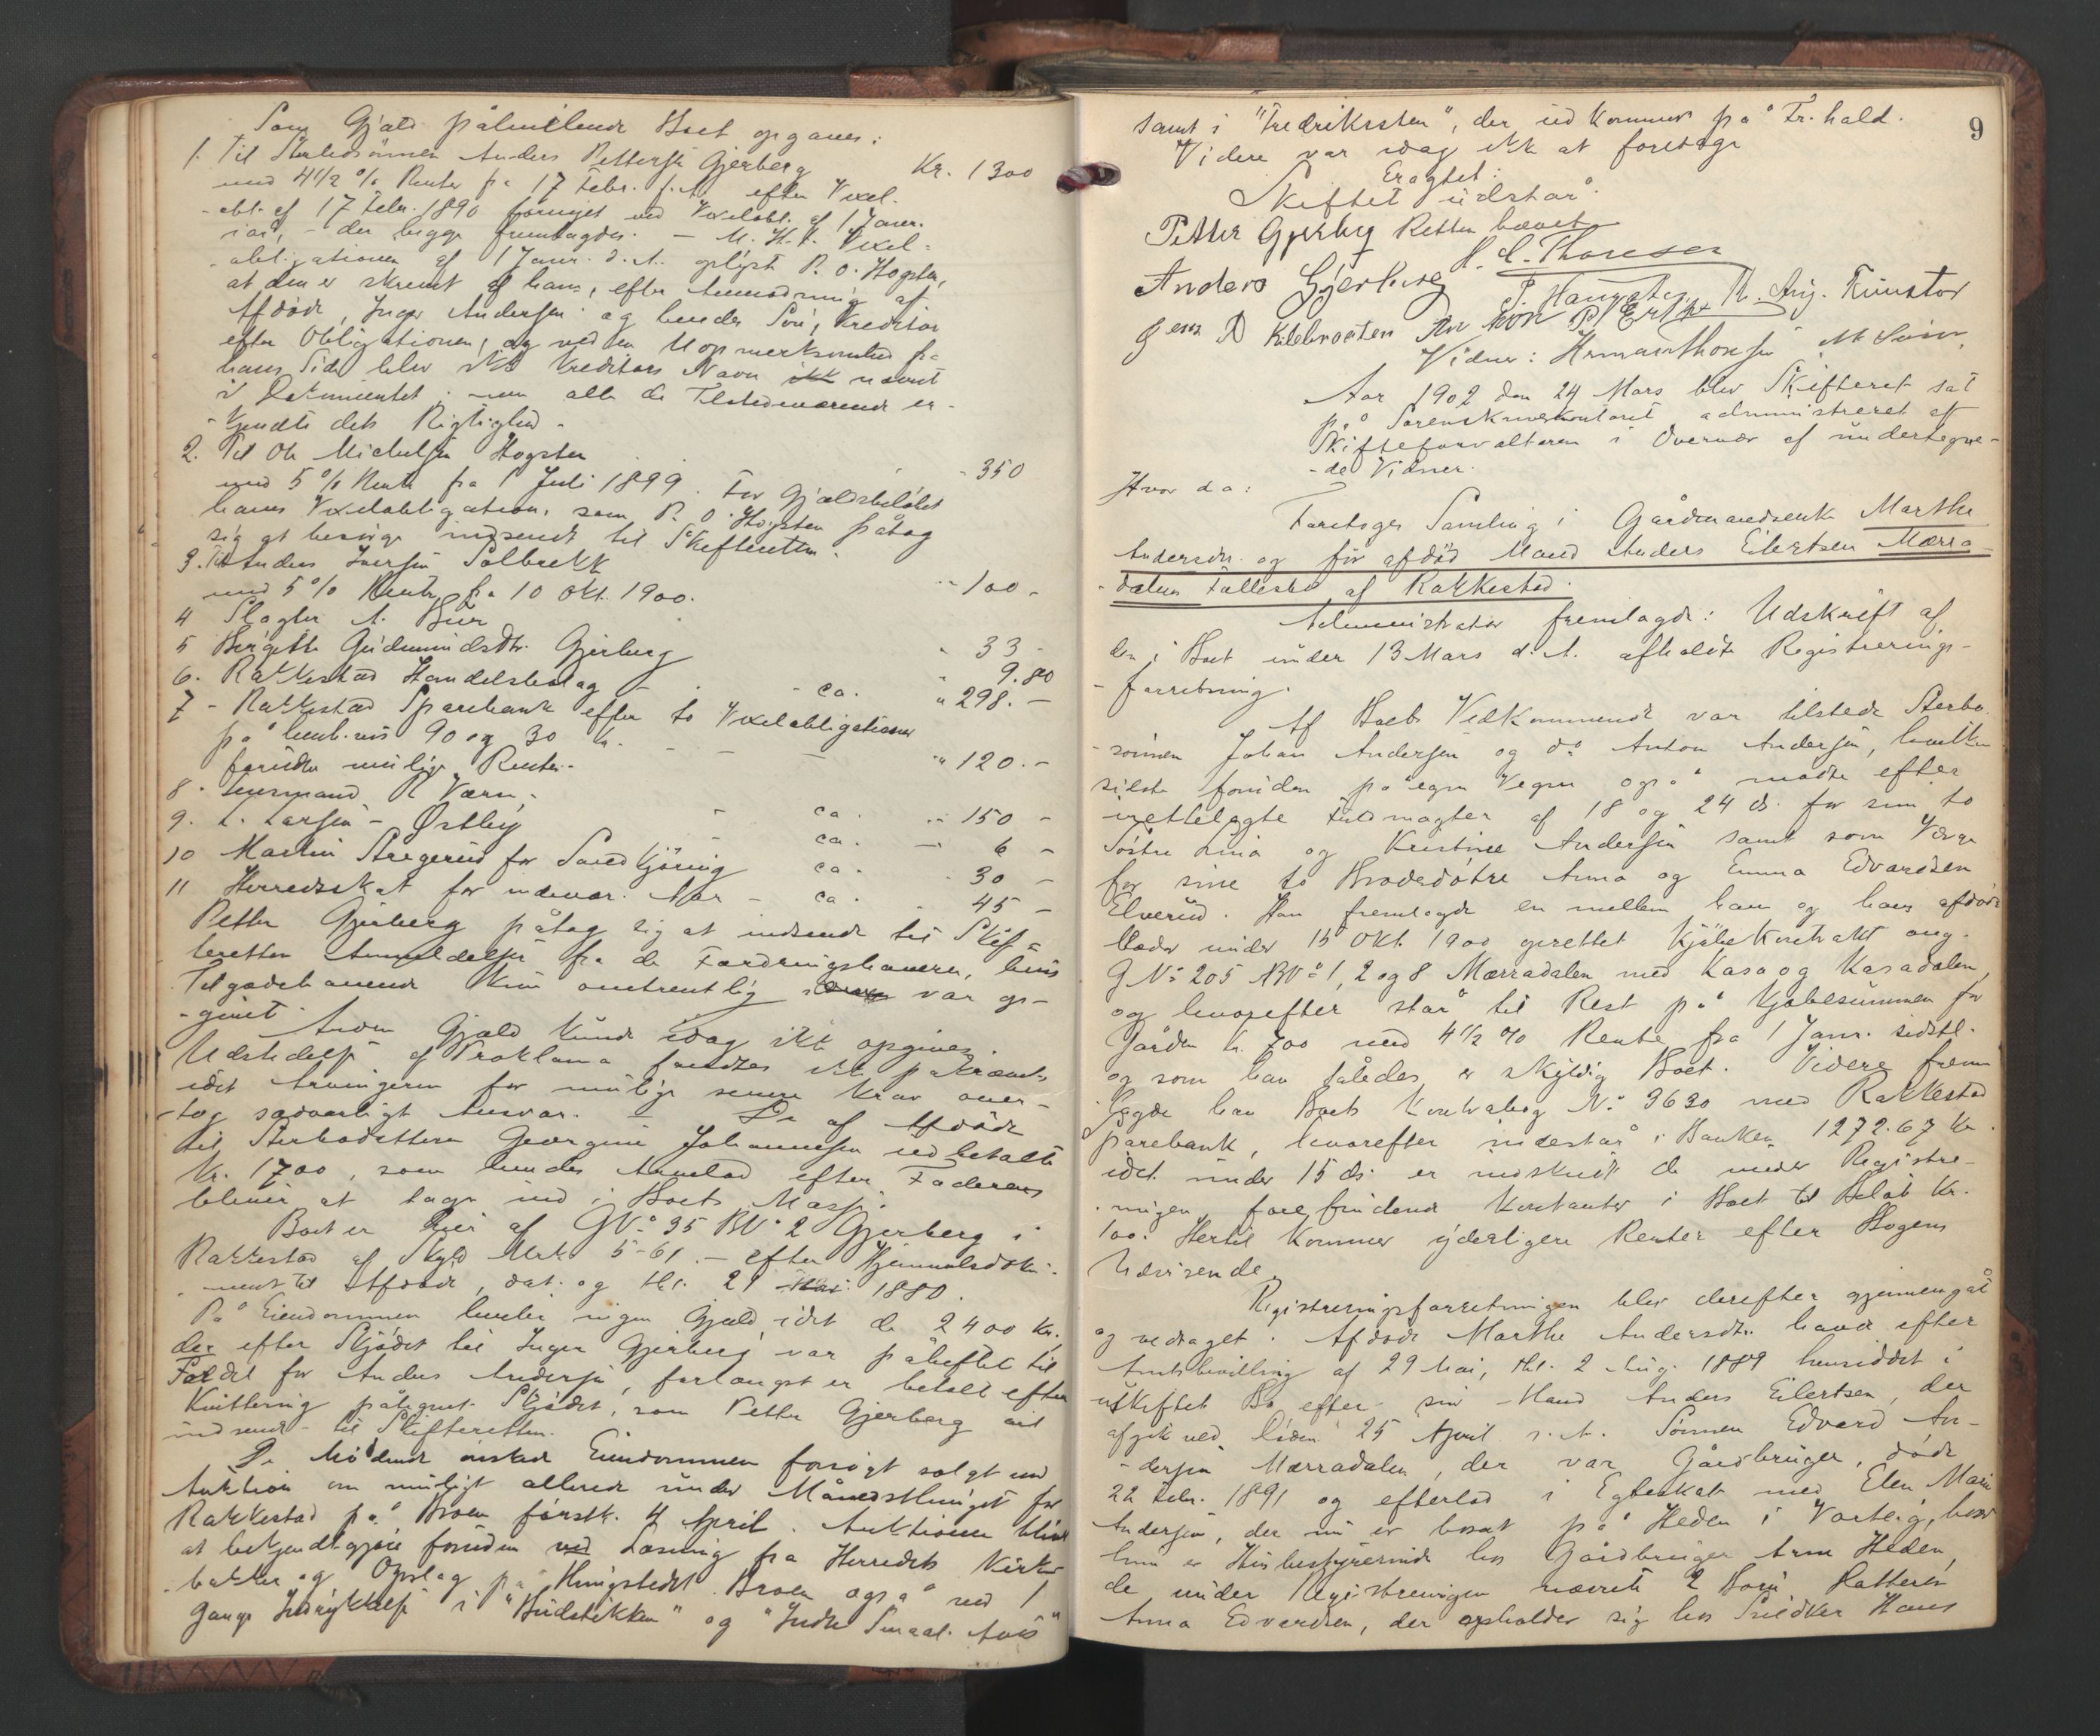 Som Gjæld påhvilende Boet opgaves:
1. Til Sterbosønnen Anders Pettersen Gjerberg Kr. 1300
med 4 1/2 % Renter fra 17 Febr. f. A. efter Vexel-
-obl. af 17 Febr. 1890 fornyet ved Vexelobl. af 1 Janr.
iår, - der begge fremlagdes. - M. H. t. Vexel-
-obligationen af 1 Janr. d. A. oplyste P. O. Hogsten,
at den er skrevet af ham, efter Anmodning af
Afdøde, Inger Andersen og hendes Søn, Kreditor
efter Obligationen, og ved en Uopmerksomhed fra
hans Side blev ikke Kreditors Navn ikke nævnt
i Dokumentet, men alle de Tilstedeværende er-
-kjendte dets Rigtighed.
2. Til Ole Michelsen Hogsten - 350
med 5 % Rente fra 1 Juli 1899. For Gjældsbeløbet
haves Vexelobligation, som P. O. Hogsten påtog
sig at besørge indsendt til Skifteretten.
3. Til Anders Iversen Solbrekk
med 5 % Rente fra 10 Okt. 1900. " 100 -
4 Slagter A. Buer " 33 -
5 Bergitte Gudmundsdtr. Gjerberg " 9.80
6. Rakkestad Handelslag - ca. " 298. -
7 - Rakkestad Sparebank efter to Vexelobligationer
på henh.vis 90 og 30 Kr.
foruden mulige Renter. " 120. -
8. Lensmand RVærn, - ca. " 150 -
9. L. Larsen - Østby - ca. - 6 -
10 Martin Stegerud for Sandkjøring ca. " 30 -
11 Herredsskat for nævær. Aar - ca. " 45 -
Petter Gjerberg påtog sig at indsende til Skif-
teretten Anmeldelser fra de Fordringshavere, hvis
Tilgodehavende kun omtrentlig var op-
-givet.
Anden Gjæld kunde idag ikke opgives.
Udstedelse af Proklama fandtes ikke påkrævet,
idet Arvingerne for mulige senere Krav over-
-tog sædvanligt Ansvar. - De af Afdøde
til Sterbodatteren Georgine Johannesen udbetalte
Kr. 1700, som hendes Arvelod efter Faderen
bliver at tage ind i Boets Masse.
Boet er Eier af GNo 35 BNo 2 Gjerberg i
Rakkestad af Skyld Mrk. 5-61 - efter Hjemmelsdoku-
-ment til Afdøde, dat. og thl. 21 1880.
På Eiendommen hviler ingen Gjæld, idet de 2400 Kr.
der efter Skjødet til Inger Gjerberg var påheftet til
Fordel for Anders Andersen, forlængst er betalt efter
Kvittering påtegnet Skjødet, som Petter Gjerberg vil
indsende til Skifteretten.
De Mødende ønsket Eiendommen forsøgt solgt ved
Auktion om muligt allerede under Månedsthinget for
Rakkestad på Broen førstk. 4 April. Auktionen bliver
at bekjendtgjøre foruden ved Læsning fra Herredets Kirke-
bakker og Opslag på Thingstedet Broen også ved 1
Gangs Indrykkelse i "Budstikken" og "Indre Smaal. Avis"
9
samt i "Fredriksten", der udkommer på Fr.hald.
Videre var idag ikke at foretage
Eragtet:
Skiftet udstår.
Petter Gjerberg Retten hævet
Anders Gjerberg H. C. Thoresen
Vidner: Hermanthonsen
Aar 1902 den 24 Mars blev Skifteret sat
på Sorenskriverkontoret administreret af
Skifteforvalteren i Overvær af undertegne-
-de Vidner.
Hvor da:
Foretoges Samling i Gårdmandsenke Marthe
Andersdtr. og før afdød Mand Anders Eilertsen Mærra-
-dalens Fællesbo af Rakkestad.
Administrator fremlagde: Udskrift af
den i Boet under 13 Mars d. A. afholdte Registrerings-
-forretning.
Af Boets Vedkommende var tilstede Sterbo-
-sønnen Johan Andersen og do Anton Andersen, hvilken
sidste foruden på egne Vegne også mødte efter
irettelagte Fuldmagter af 18 og 24 ds. for sine to
Søstre Lina og Kristine Andersen samt som Værge
for sine to Broderdøtre Anna og Emma Edvardsen
Elverud. Han fremlagde en mellem ham og hans afdøde
Moder under 15 Okt. 1900 oprettet Kjøbekontrakt ang.
GNo 205 BNo 1, 2 og 8 Mærradalen med Kasa og Kasadalen,
og hvorefter står til Rest på Kjøbesummen for
Gården Kr. 700 med 4 1/2 % Rente fra 1 Janr. sidstl.
og som han således er skyldig Boet. Videre frem-
lagde han Boets Kontrabog No 3630 med Rakkestad
Sparebank, hvorefter indestår i Banken 1272.67 Kr.
idet under 15 ds. er indskudt de under Registre-
-ringen forefundende Kontanter i Boet til Beløb Kr.
100. Hertil kommer yderligere Renter efter Bogens
Udvisende.
Registreringsforretningen blev derefter gjennemgåt
og vedtaget. Afdøde Marthe Andersdtr. havde efter
Amtsbevilling af 29 Mai, thl. 2 Aug. 1889 hensiddet i
uskiftet Bo efter sin Mand Anders Eilertsen, der
afgik ved Døden 25 April s. A. Sønnen Edvard An-
-dersen Mærradalen, der var Gårdbruger, døde
22 Febr. 1891 og efterlod i Egteskab med Elen Marie
Andersen, der nu er bosat på Heden i Varteig, hvor
hun er Husbestyrerinde hos Gårdbruger Arne Heden,
de under Registreringen nævnte 2 Børn. Datteren
Anna Edvardsen, der opholder sig hos Snedker Hans